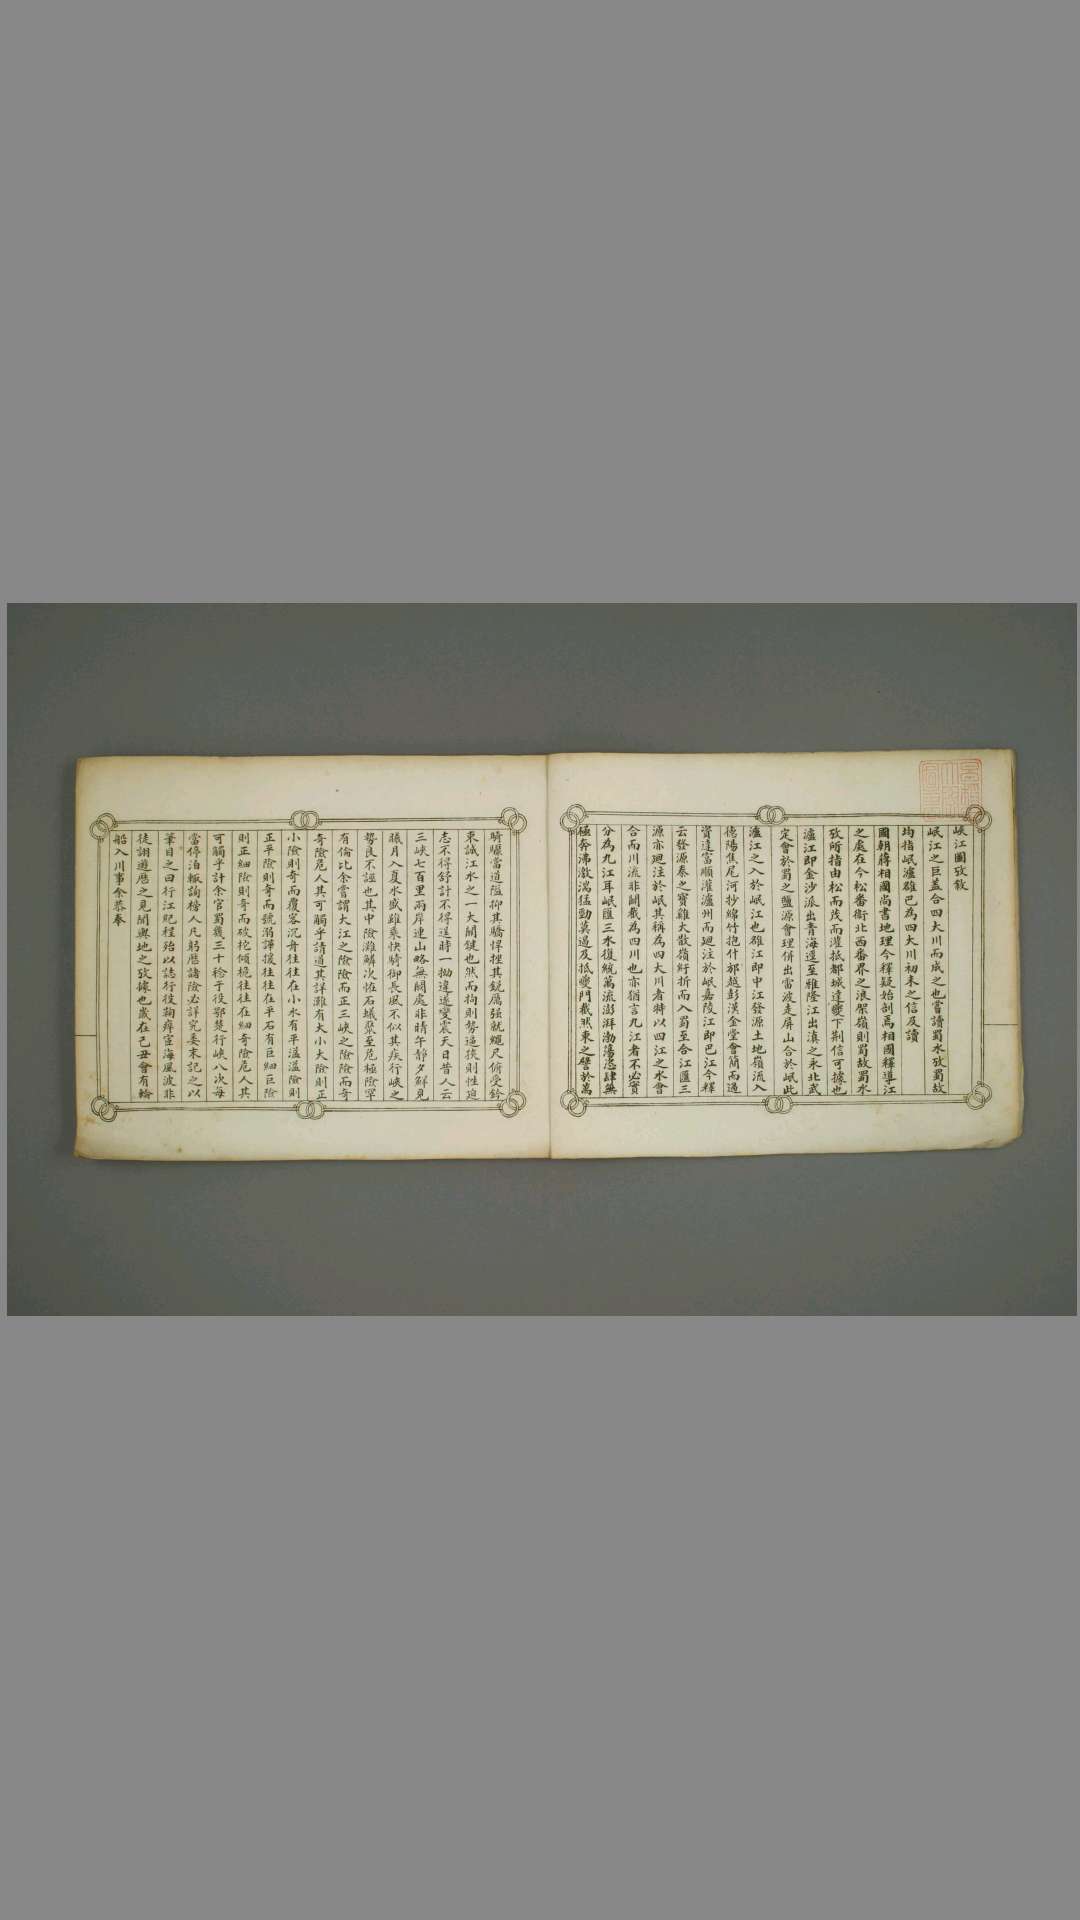 峽江圖攷敘
岷江之巨蓋合四大川而成之也嘗讀蜀水攷蜀故
均指岷瀘雒巴為四大川初未之信及讀
國朝蔣相國尚書地理今釋疑始剖焉相國釋導江
之處在今松番衞北西番界之浪架嶺則蜀故蜀水
攷所指由松而茂而灌抵都城達夔下荆信可據也
瀘江即金沙派出青海遥至雅隆江出滇之永北武
定會於蜀之鹽源會理併出雷波走屏山合於岷此
瀘江之入於岷江也雒江即中江發源土地嶺流入
德陽焦尾河抄綿竹抱什邡越彭漢金堂會簡而過
資達富順灌瀘州而廻注於岷嘉陵江即巴江今釋
云發源秦之寶雞大散嶺紆折而入蜀至合江匯三
源亦廻注於岷其稱為四大川者特以四江之水會
合而川流非闢截為四川也亦猶言九江者不必實
分為九江耳岷匯三水復統萬流澎湃渤蕩恣肆無
極奔沸激湍猛勁莫遏及抵夔門截然東之譬於萬
騎驟當道隘抑其驕悍挫其銳厲强就繩尺俯受鈐
束誠江水之一大關鍵也然而拘則勢逼狹則性迫
志不得舒計不得逞時一拗違遂變震天日昔人云
三峽七百里兩岸連山略無闕處非晴午靜夕鮮見
曦月入夏水盛雖乘快騎御長風不似其疾行峽之
勢良不誣也其中險灘鱗次恠石蟻聚至危極險罕
有倫比余嘗謂大江之險險而正三峽之險險而奇
奇險危人其可觸乎請道其詳灘有大小大險則正
小險則奇而覆客沉舟往往在小水有平溢溢險則
正平險則奇而號溺譁援往往在平石有巨細巨險
則正細險則奇而破柁傾橈往往在細奇險危人其
可觸乎計余官蜀幾三十稔于役鄂楚行峽八次每
當停泊輒詢榜人凡躬歷諸險必詳究委末記之以
筆目之曰行江紀程殆以誌行役鞠瘁宦海風波非
徒詡遊歷之見聞輿地之攷據也歲在己丑會有輪
船入川事余恭奉